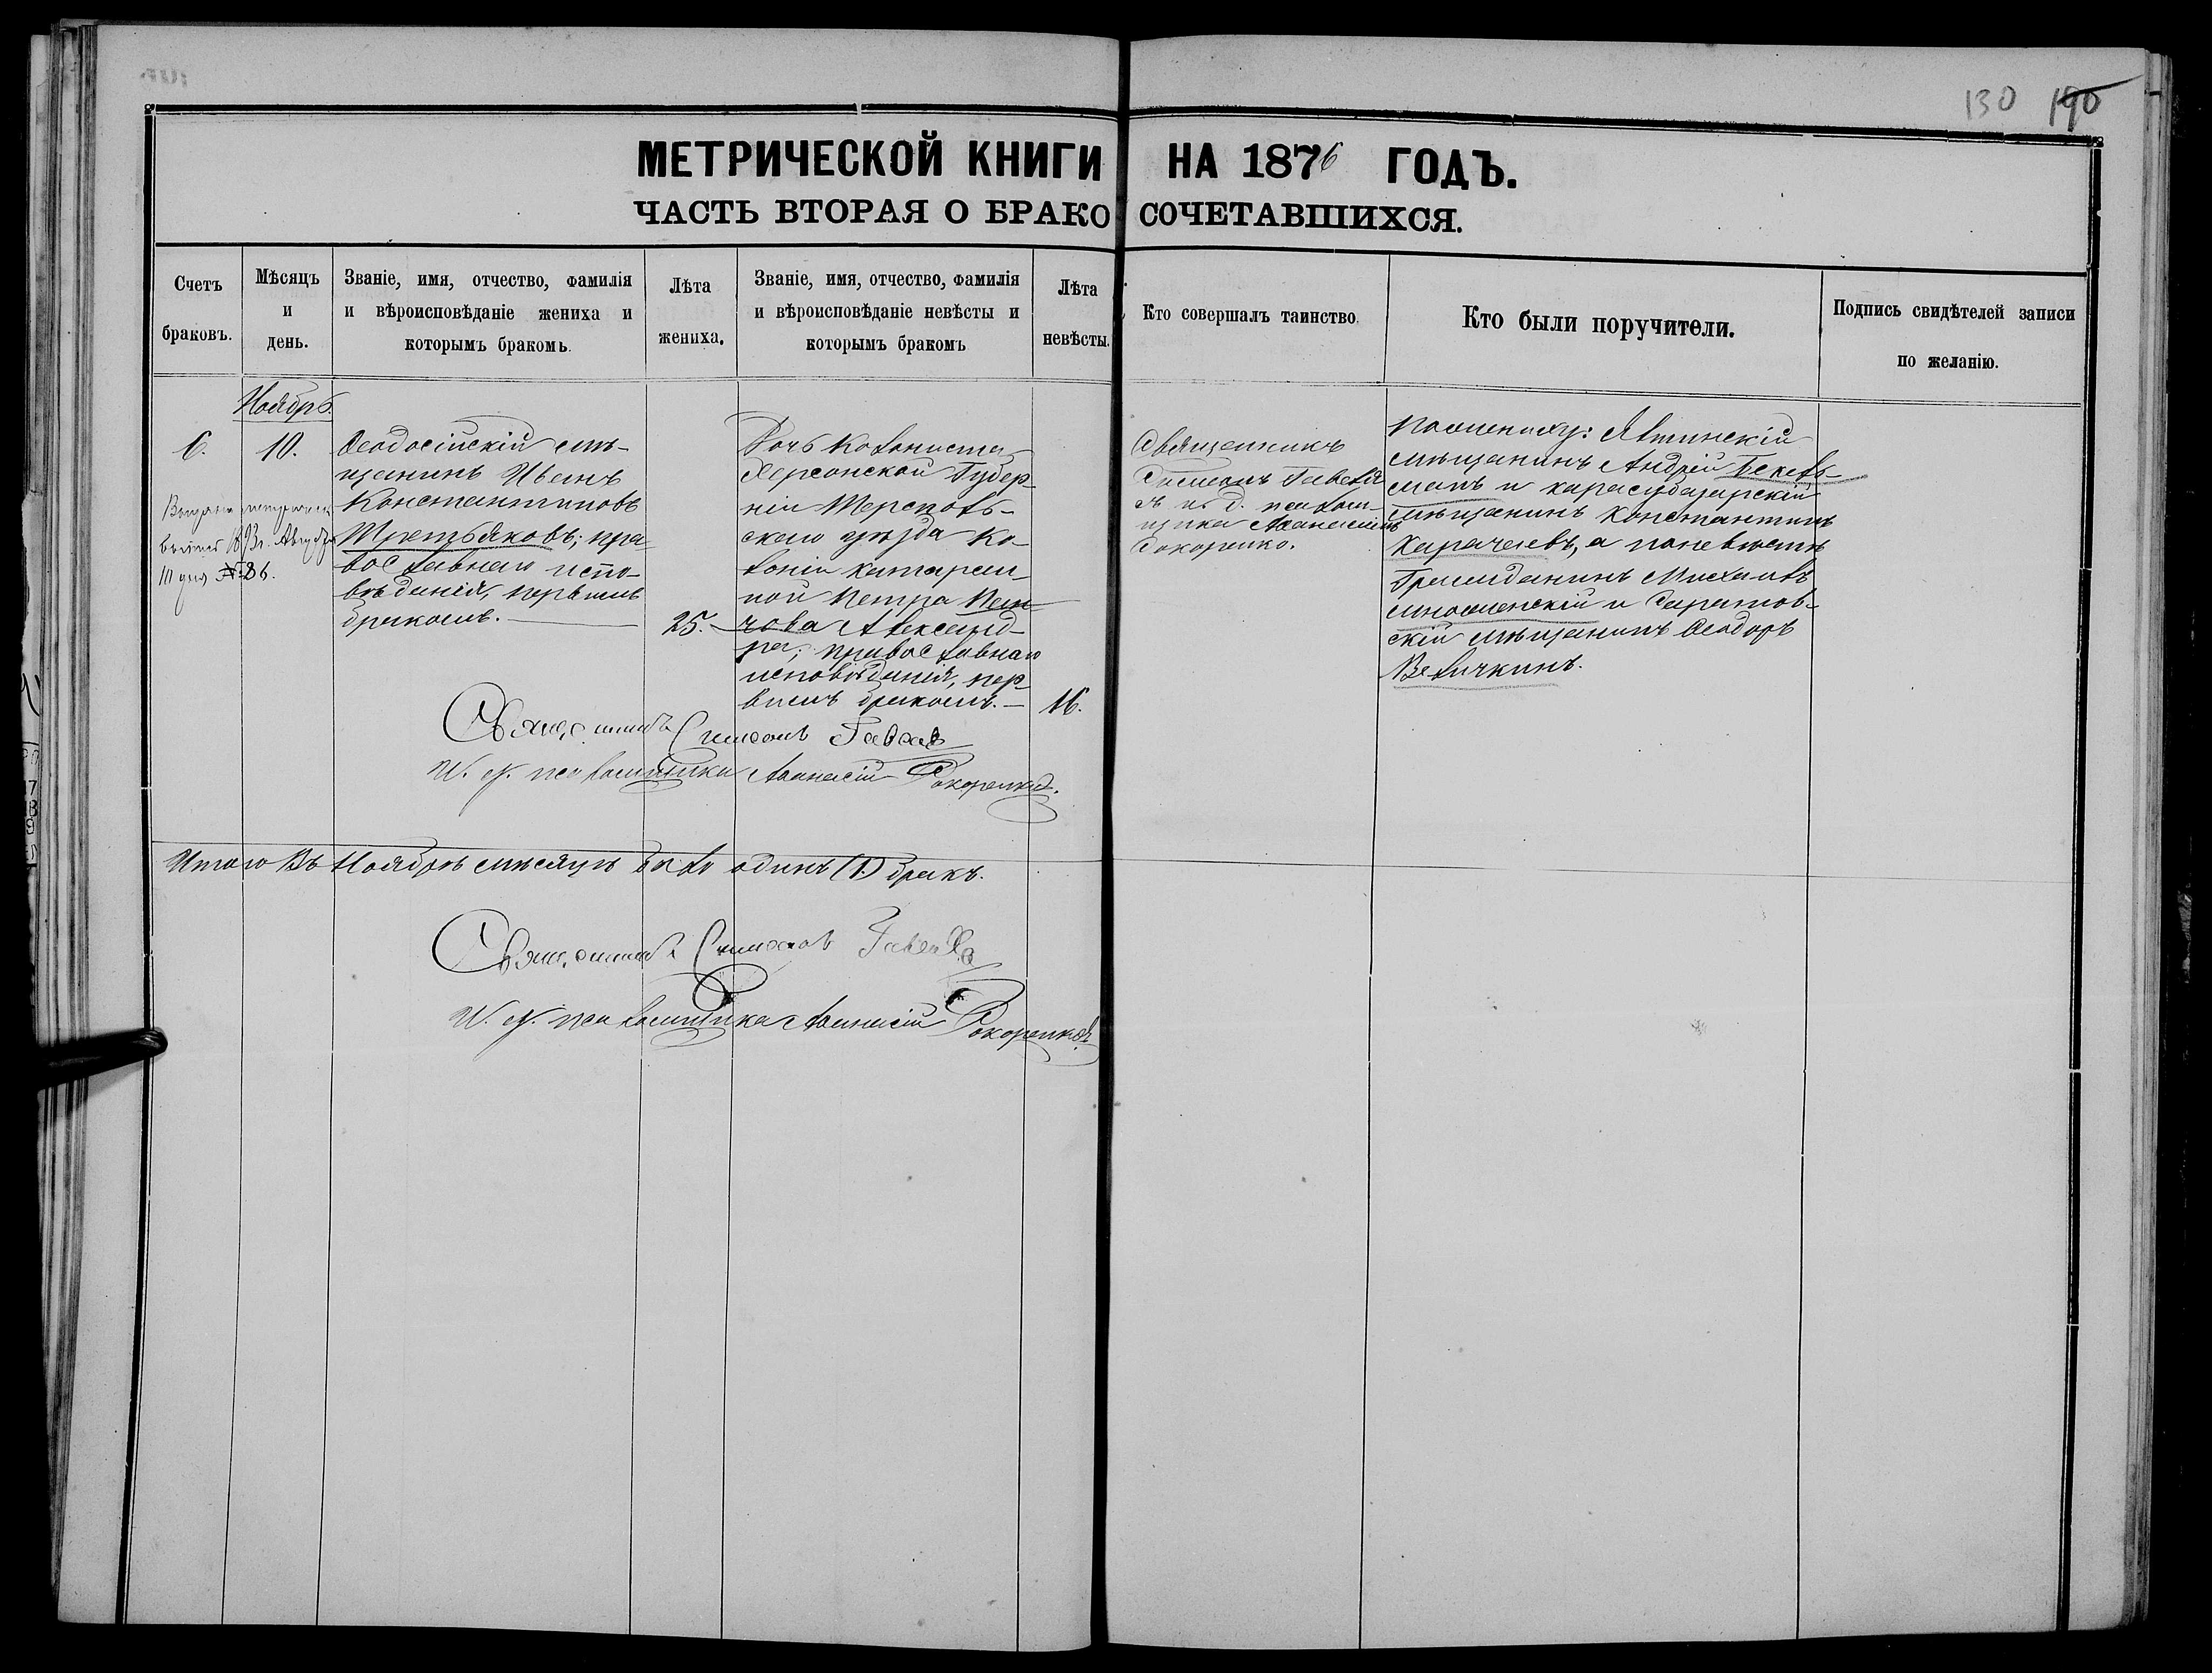 130 190
МЕТРИЧЕСКОЙ КНИГИ НА 1876 ГОДЪ.
ЧАСТЬ ВТОРАЯ О БРАКОСОЧЕТАВШИХСЯ.
Счетъ
браковъ.
Мѣсяцъ
и
день.
Званіе, имя, отчество, фамилія
и вѣроисповѣданіе жениха и
которымъ бракомъ.
Лѣта
жениха.
Званіе, имя, отчество, фамилія
и вѣроисповѣданіе невѣсты и
которымъ бракомъ
Лѣта
невѣсты.
Кто совершалъ таинство.
Кто были поручители.
Подпись свидѣтелей записи
по желанію.
Ноябрь.
6.
10.
Ѳеодосійскій мѣ-
щанинъ Иванъ
Константиновъ
Третьяковъ; пра-
вославнаго испо-
вѣданія, первымъ
бракомъ.
25.
Дочь колониста
Херсонской Губер-
ніи Тирасполь-
скаго уѣзда ко-
лоніи Катаржи-
ной Петра
Александ-
ра; православнаго
исповѣданія, пер-
вымъ бракомъ.
16.
Священникъ
Симеонъ
и. д. псалом-
щика Аѳанасій
Сокоренко.
По жениху: Ялтинскій
мѣщанинъ Андрей Бекель-
манъ и карасубазарскій
мѣщанинъ Константинъ
Харачаевъ, а по невѣстѣ
Гражданинъ Михаилъ
и Саратов-
скій мѣщанинъ Ѳеодоръ
Величкинъ.
1893 г. Августа
10 дня № 86.
Священникъ Симеонъ
И. д. псаломщика Аѳанасій Сокоренко.
Итого въ Ноябрѣ мѣсяцѣ былъ одинъ (1.) бракъ.
Священникъ Симеонъ
И. д. псаломщика Аѳанасій Сокоренко.